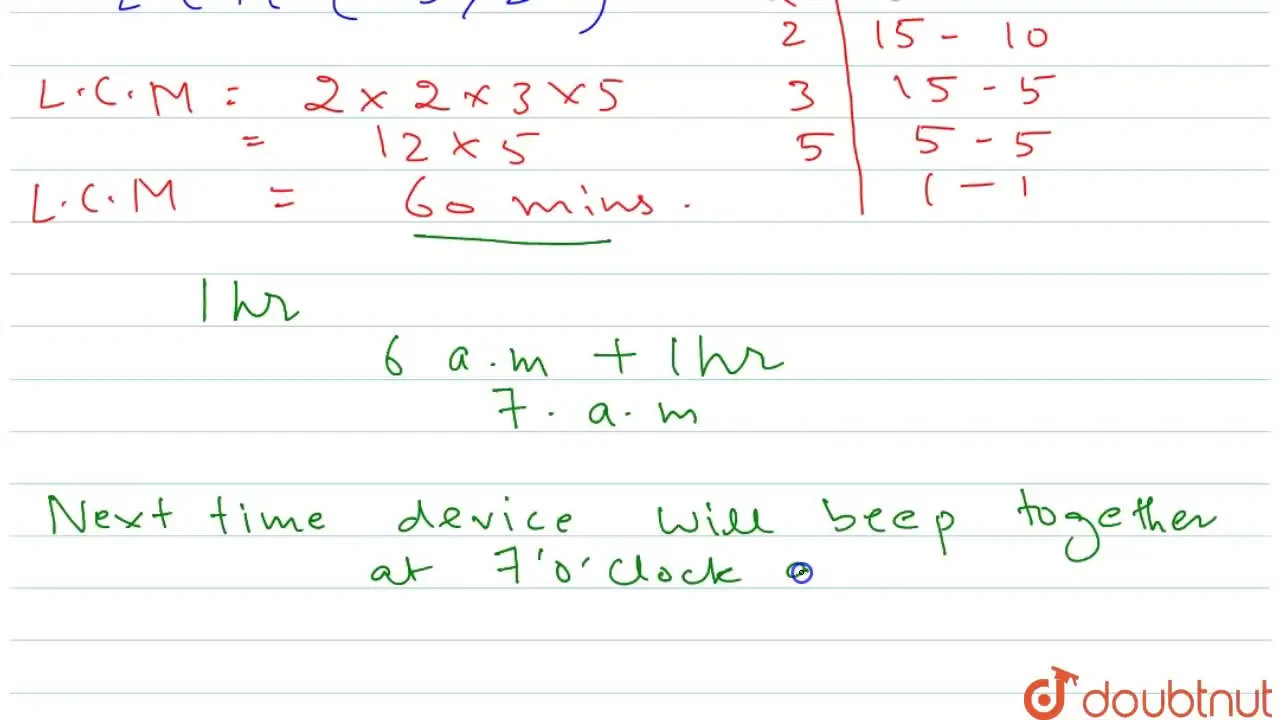 2 | 15 - 10
L.C.M = 2 × 2 × 3 × 5 3 | 15 - 5
= 12 × 5 5 | 5 - 5
L.C.M = 60 mins. | 1 - 1
1 hr
6 a.m + 1 hr
7. a.m
Next time device will beep together
at 7'o'clock a
doubtnut